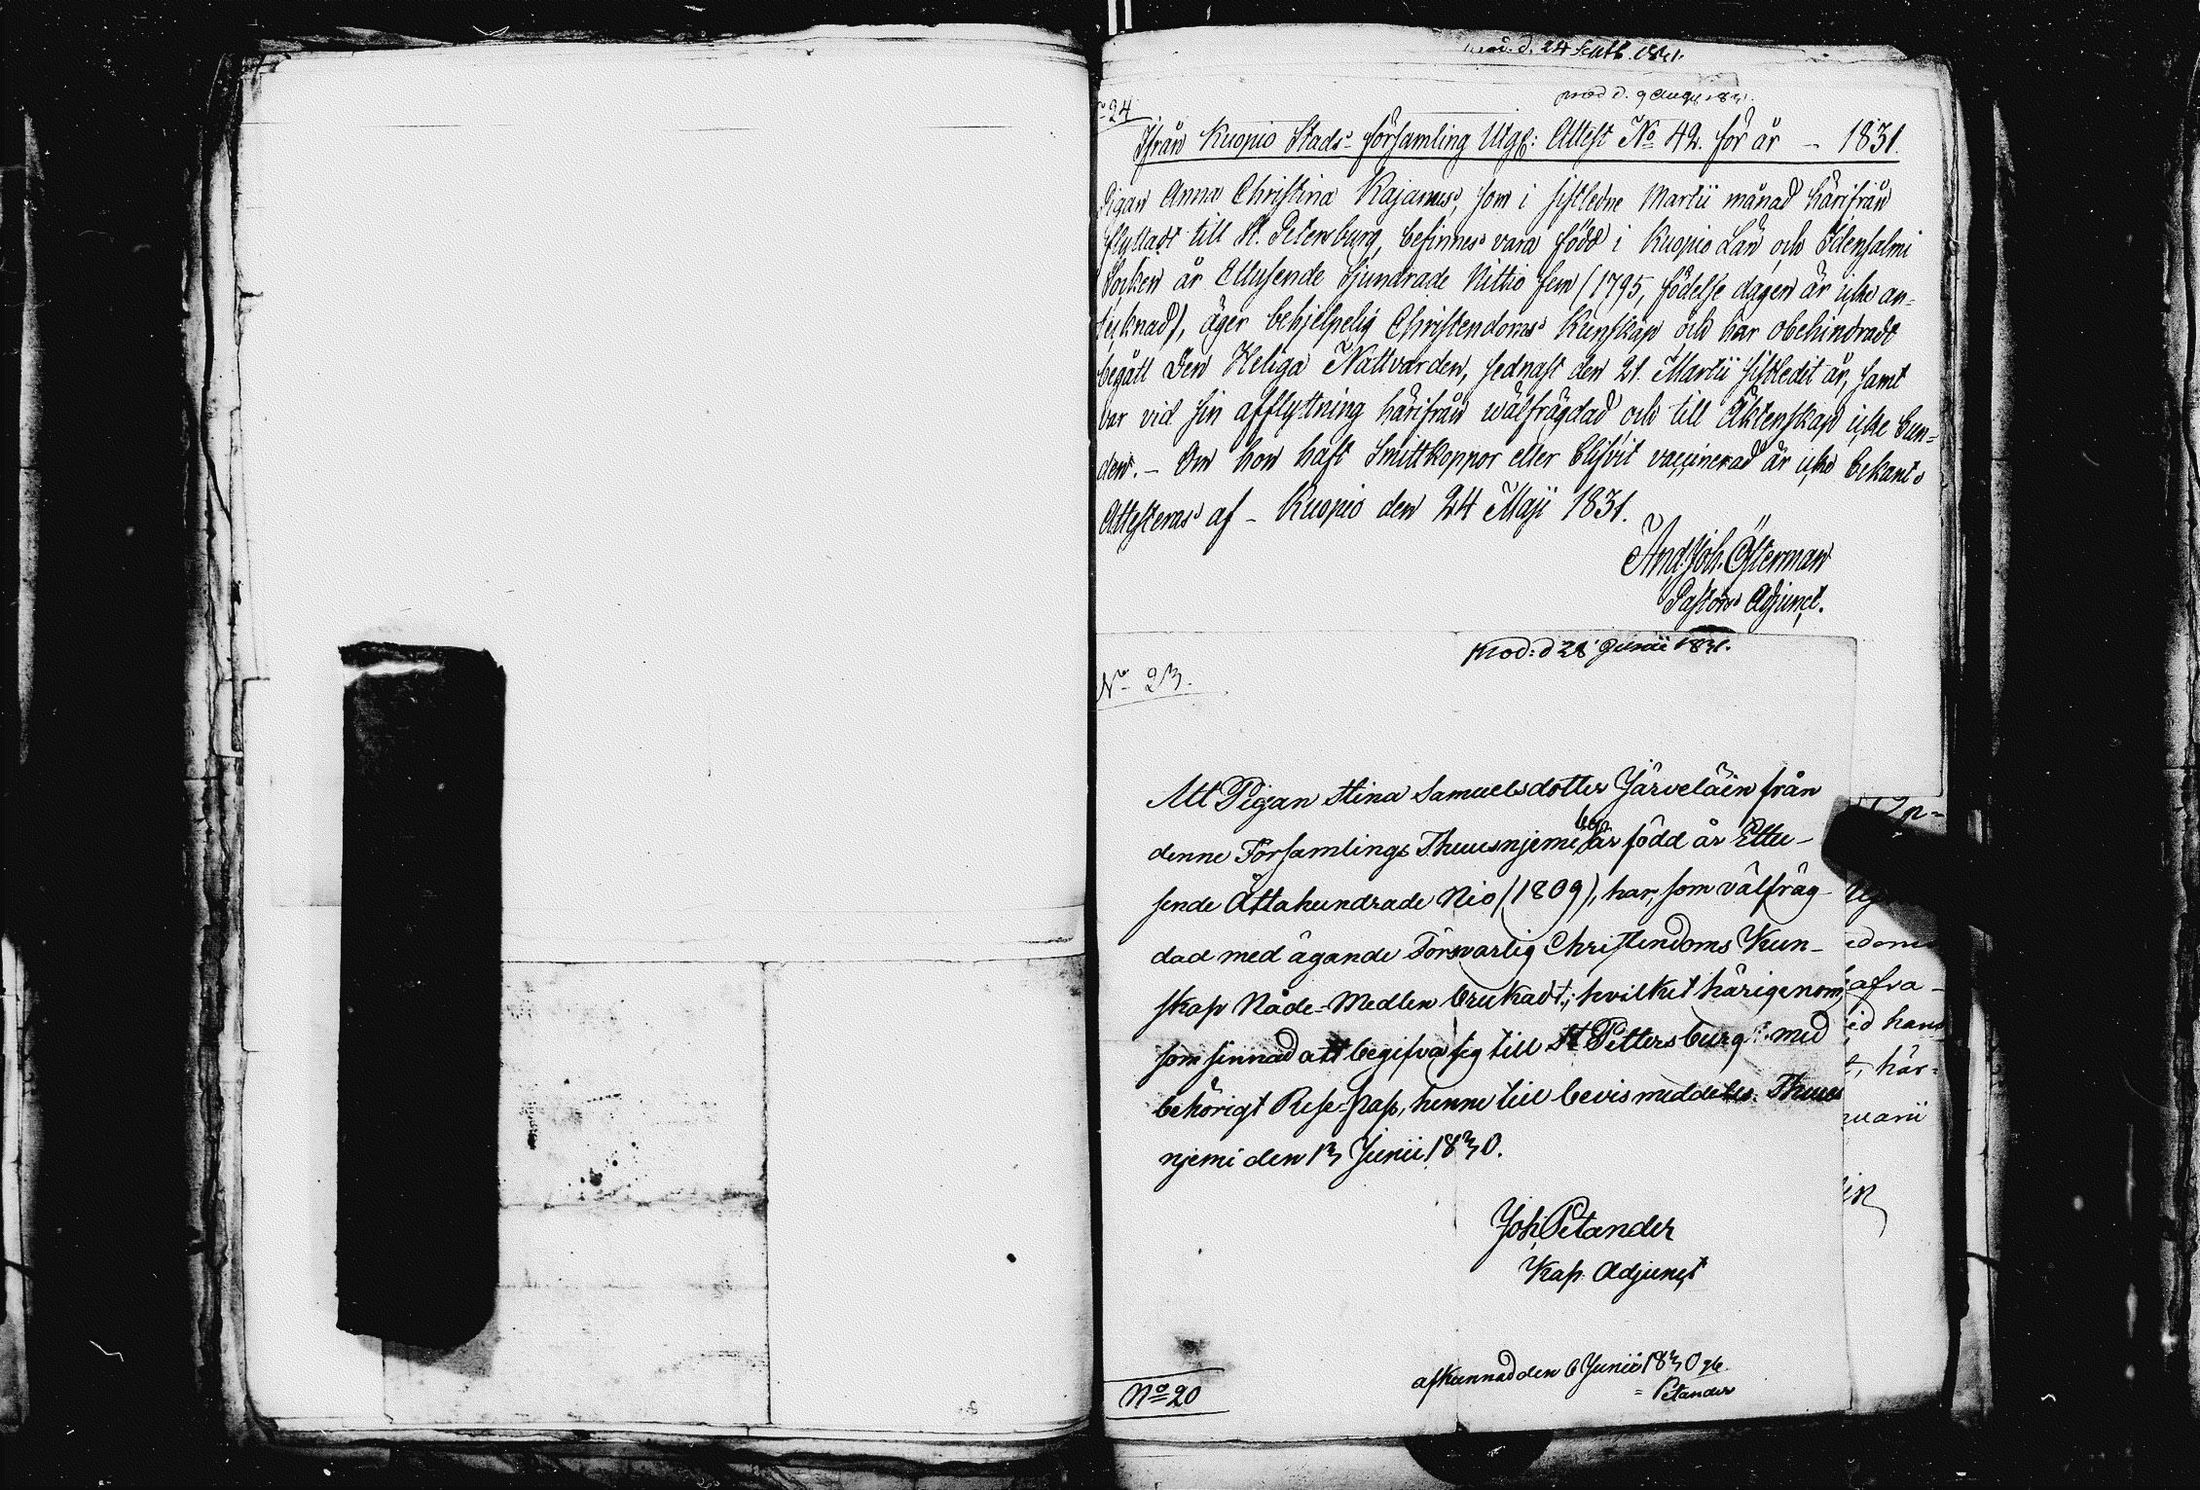 prod. d. 24 Septb. 1831.
prod d. 9 Aug 1831.
No 24
Ifrån Kuopio Stads-församling Utgif: Attest No 42. för år – 1831.
Pigan Anna Christina Kajanus, som i sistledne Martii månad härifrån
flyttadt till St. Petersburg, befinnes vara född i Kuopio Län och Idensalmi
Socken år Ettusende Sjundrade Nittio fem (1795, födelse dagen är icke an-
tecknad), äger behjelpelig Christendoms Kunskap och har obehindradt
begått Den Heliga Nattvarden, sednast den 21. Martii sistledit år, samt
var vid sin afflyttning härifrån wälfrägdad och till Äktenskap icke bun-
den. – Om hon haft Smittkoppor eller blifvit vaccinerad är icke bekant.
Attesteras af – Kuopio den 24 Maji 1831.
And. Joh. Österman
Pastors Adjunct.
Prod: d 28 Junii 1831.
No 23.
Att Pigan Stina Samuelsdotter Järveläin från
denne Församlings Thuusnjemi by är född år Ettu-
sende Åttahundrade Nio (1809), har, som välfräg-
dad med ägande Försvarlig Christendoms Kun-
skap Nåde-Medlen brukadt; hvilket härigenom,
som sinnad att begifva sig till St Pettersburg med
behörigt Rese-Pass, henne till bevis meddeles. Thuus
njemi den 13 Junii 1830.
Joh. Petander
Kap. Adjunct
afkunnad den 6 Junii 1830
Petander
No 20
edoms
afva-
id hans
t, här-
uarii